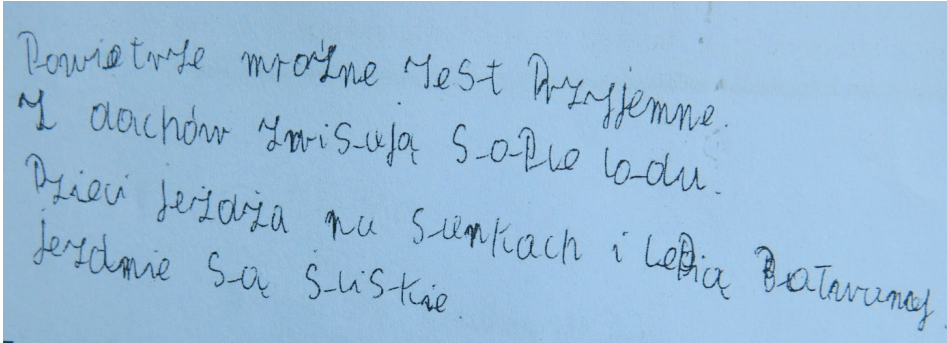 Powietrze mroźne jest Przyjemne.
Z dachów zwisują sople lodu.
Dzieci jeżdża na sankach i lepią Bałwanay.
jezdnie są śliskie.